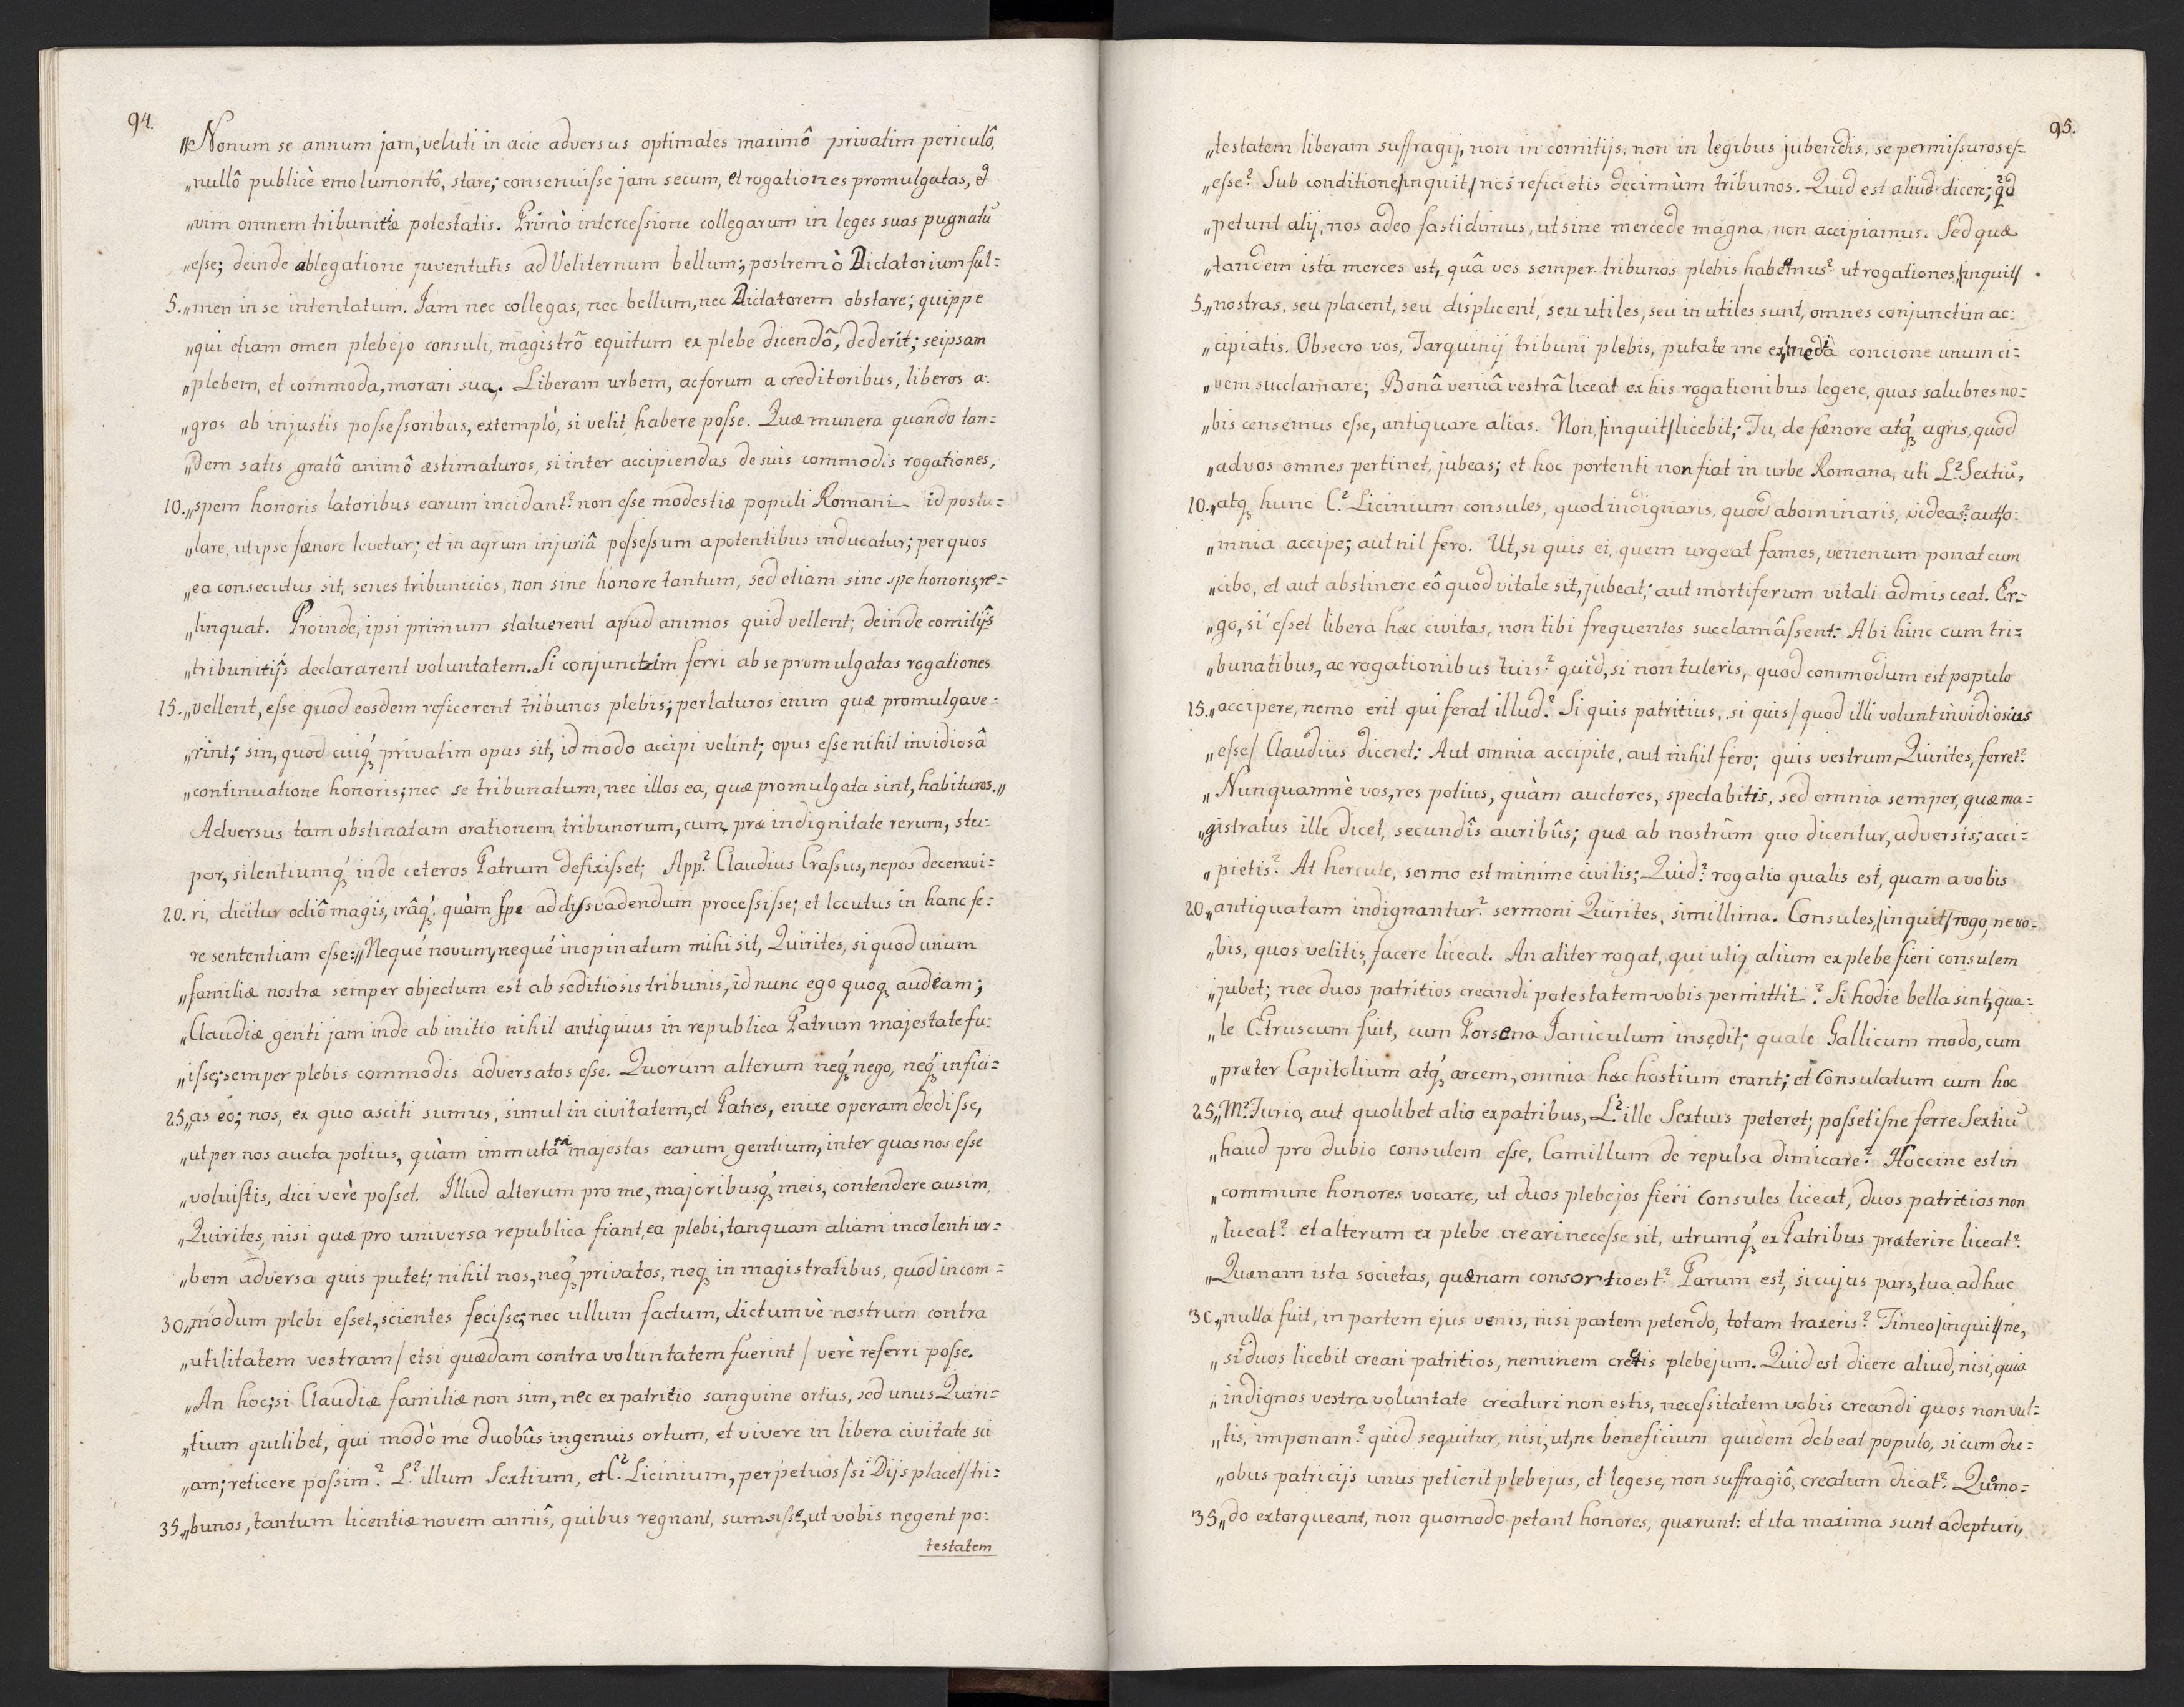 94.
„Nonum se annum jam, veluti in acie adversus optimates maximô privatim periculô,
„nullô publicè emolumentô, stare; consenuisse jam secum, et rogationes promulgatas, et
„vim omnem tribunitiæ potestatis. Primò intercessione collegarum in leges suas pugnatū
„esse; deinde ablegatione juventutis ad Veliternum bellum; postremò Dictatorium ful=
5. „men in se intentatum. Jam nec collegas, nec bellum, nec Dictatorem obstare; quippe
„qui etiam omen plebejo consuli, magistrô equitum ex plebe dicendô, dederit; seipsam
„plebem, et commoda, morari sua. Liberam urbem, ac forum a creditoribus, liberos a=
„gros ab injustis possessoribus, extemplò, si velit, habere posse. Quæ munera quando tan=
„dem satis gratô animô æstimaturos, si inter accipiendas de suis commodis rogationes,
10. „spem honoris latoribus earum incidant? non esse modestiæ populi Romani id postu=
„lare, ut ipse fænore levetur; et in agrum injuriâ possessum a potentibus inducatur; per quos
„ea consecutus sit, senes tribunicios, non sine honore tantum, sed etiam sine spe honoris, re=
„linquat. Proinde, ipsi primum statuerent apud animos quid vellent; deinde comitijs
„tribunitijs declararent voluntatem. Si conjunctim ferri ab se promulgatas rogationes
15. „vellent, esse quod eosdem reficerent tribunos plebis; perlaturos enim quæ promulgave=
„rint; sin, quod cuiq́ privatim opus sit, id modo accipi velint; opus esse nihil invidiosâ
„continuatione honoris; nec se tribunatum, nec illos ea, quæ promulgata sint, habituros.„
Adversus tam obstinatam orationem tribunorum, cum præ indignitate rerum, stu=
por, silentiumq́ inde ceteros Patrum defixisset; App.? Claudius Crassus, nepos decemvi=
20. ri, dicitur odiô magis, irâq́ quàm spe ad dissvadendum processisse; et locutus in hanc fe=
re sententiam esse: „Neque novum, neque inopinatum mihi sit, Quirites, si quod unum
„familiæ nostræ semper objectum est ab seditiosis tribunis, id nunc ego quoq audiam;
„Claudiæ genti jam inde ab initio nihil antiquius in republica Patrum majestate fu=
„isse; semper plebis commodis adversatos esse. Quorum alterum neq́ nego, neq́ infici=
25. „as eo; nos, ex quo asciti sumus, simul in civitatem, et Patres, enixe operam dedisse,
„ut per nos aucta potius, quàm immutata majestas earum gentium, inter quas nos esse
„voluistis, dici verè posset. Illud alterum pro me, majoribusq́ meis, contendere ausim,
„Quirites, nisi quæ pro universa republica fiant, ea plebi, tanquam aliam incolenti ur=
„bem adversa quis putet; nihil nos, neq́ privatos, neq in magistratibus, quod incom=
30. „modum plebi esset, scientes fecisse; nec ullum factum, dictumvè nostrum contra
„utilitatem vestram / etsi quædam contra voluntatem fuerint / verè referri posse.
„An hoc; si Claudiæ familiæ non sim, nec ex patritio sanguine ortus, sed unus Quiri=
„tium quilibet, qui modò me duobûs ingenuis ortum, et vivere in libera civitate sci
„am; reticere possim? L.? illum Sextium, et C.? Licinium, perpetuos / si Dijs placet / tri=
35. „bunos, tantum licentiæ novem annîs, quibus regnant, sumsisse, ut vobis negent po=
testatem
95.
„testatem liberam suffragij, non in comitijs, non in legibus jubendis, se permissuros es=
„esse? Sub conditione / inquit / nos reficietis decimùm tribunos. Quid est aliud dicere; qd
„petunt alij, nos adeo fastidimus, ut sine mercede magna non accipiamus. Sed quæ
„tandem ista merces est, quâ vos semper tribunos plebis habeamus? ut rogationes / inquit /
5. „nostras, seu placent, seu displicent, seu utiles, seu inutiles sunt, omnes conjunctim ac=
„cipiatis. Obsecro vos, Tarquinij tribuni plebis, putate me ex media concione unum ci=
„vem succlamare; Bonâ veniâ vestrâ liceat ex his rogationibus legere, quas salubres no=
„bis censemus esse, antiquare alias. Non / inquit / licebit; Tu, de fænore atq́ agris, quod
„ad vos omnes pertinet, jubeas; et hoc portenti non fiat in urbe Romana, uti L.? Sextiū,
10. „atq hunc C.? Licinium consules, quod indignaris, quod abominaris, videas? aut o=
„mnia accipe; aut nil fero. Ut, si quis ei, quem urgeat fames, venenum ponat cum
„cibo, et aut abstinere eô quod vitale sit, jubeat; aut mortiferum vitali admisceat. Er=
„go, si esset libera hæc civitas, non tibi frequentes succlamâssent: Abi hinc cum tri=
„bunatibus, ac rogationibus tuis? quid, si non tuleris, quod commodum est populo
15. „accipere, nemo erit qui ferat illud? Si quis patritius, si quis / quod illi volunt invidiosius
„esse / Claudius diceret: Aut omnia accipite, aut nihil fero; quis vestrum, Quirites, ferret?
„Nunquamnè vos, res potius, quàm auctores, spectabitis, sed omnia semper, quæ ma=
„gistratus ille dicet, secundîs auribûs; quæ ab nostrûm quo dicentur, adversis, acci=
„pietis? At hercule, sermo est minime civilis; Quid? rogatio qualis est, quam a vobis
20. „antiquatam indignantur? sermoni Quirites, simillima. Consules, / inquit / rogo, ne vo=
„bis, quos velitis, facere liceat. An aliter rogat, qui utiq alium ex plebe fieri consulem
„jubet; nec duos patritios creandi potestatem vobis permittit? Si hodie bella sint, qua=
„le Etruscum fuit, cum Porsena Janiculum insedit; quale Gallicum modo, cum
„præter Capitolium atq́ arcem, omnia hæc hostium erant; et Consulatum cum hoc
25. „M.? Furio, aut quolibet alio ex patribus, L.? ille Sextius peteret; possetisne ferre Sextiū
„haud pro dubio consulem esse, Camillum de repulsa dimicare? Hoccine est in
„commune honores vocare, ut duos plebejos fieri Consules liceat, duos patritios non
„liceat? et alterum ex plebe creari necesse sit, utrumq́ ex Patribus præterire liceat?
„Quænam ista societas, quænam consortio est? Parum est, si cujus pars, tua adhuc
30. „nulla fuit, in partem ejus venis, nisi partem petendo, totam traxeris? Timeo / inquit / ne,
„si duos licebit creari patritios, neminem cretis plebejum. Quid est dicere aliud, nisi, quia
„indignos vestra voluntate creaturi non estis, necessitatem vobis creandi quos non vul=
„tis, imponam? quid sequitur, nisi, ut, ne beneficium quidem debeat populo, si cum du=
„obus patricijs unus petierit plebejus, et lege se, non suffragiô, creatum dicat? Quomo=
35. „do extorqueant, non quomodo petant honores, quærunt: et ita maxima sunt adepturi,